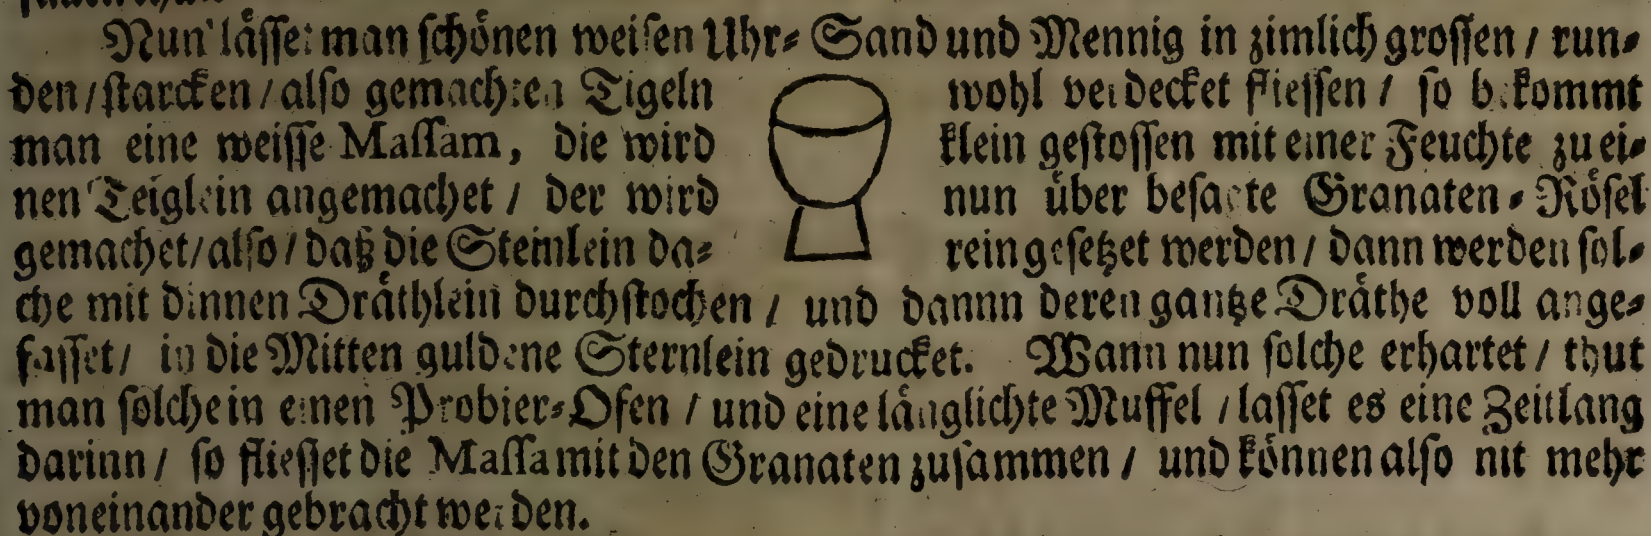 Nun läſſet man ſchönen weiſen Uhr⸗Sand und Mennig in zimlich groſſen / run⸗
den / ſtarcken / alſo gemachten Tigeln wohl verdecket flieſſen / ſo bekommt
man eine weiſſe Maſſam, die wird klein geſtoſſen mit einer Feuchte zu ei⸗
nen Teiglein angemachet / der wird nun über beſagte Granaten⸗Röſel
gemachet / alſo / daß die Steinlein da⸗ rein geſetzet werden / dann werden ſol⸗
che mit dinnen Dräthlein durchſtochen / und dannn deren gantze Dräthe voll ange⸗
faſſet / in die Mitten guldene Sternlein gedrucket. Wann nun ſolche erhartet / thut
man ſolche in einen Probier⸗Ofen / und eine länglichte Muffel / laſſet es eine Zeitlang
darinn / ſo flieſſet die Maſſa mit den Granaten zuſammen / und können alſo nit mehr
voneinander gebracht werden.